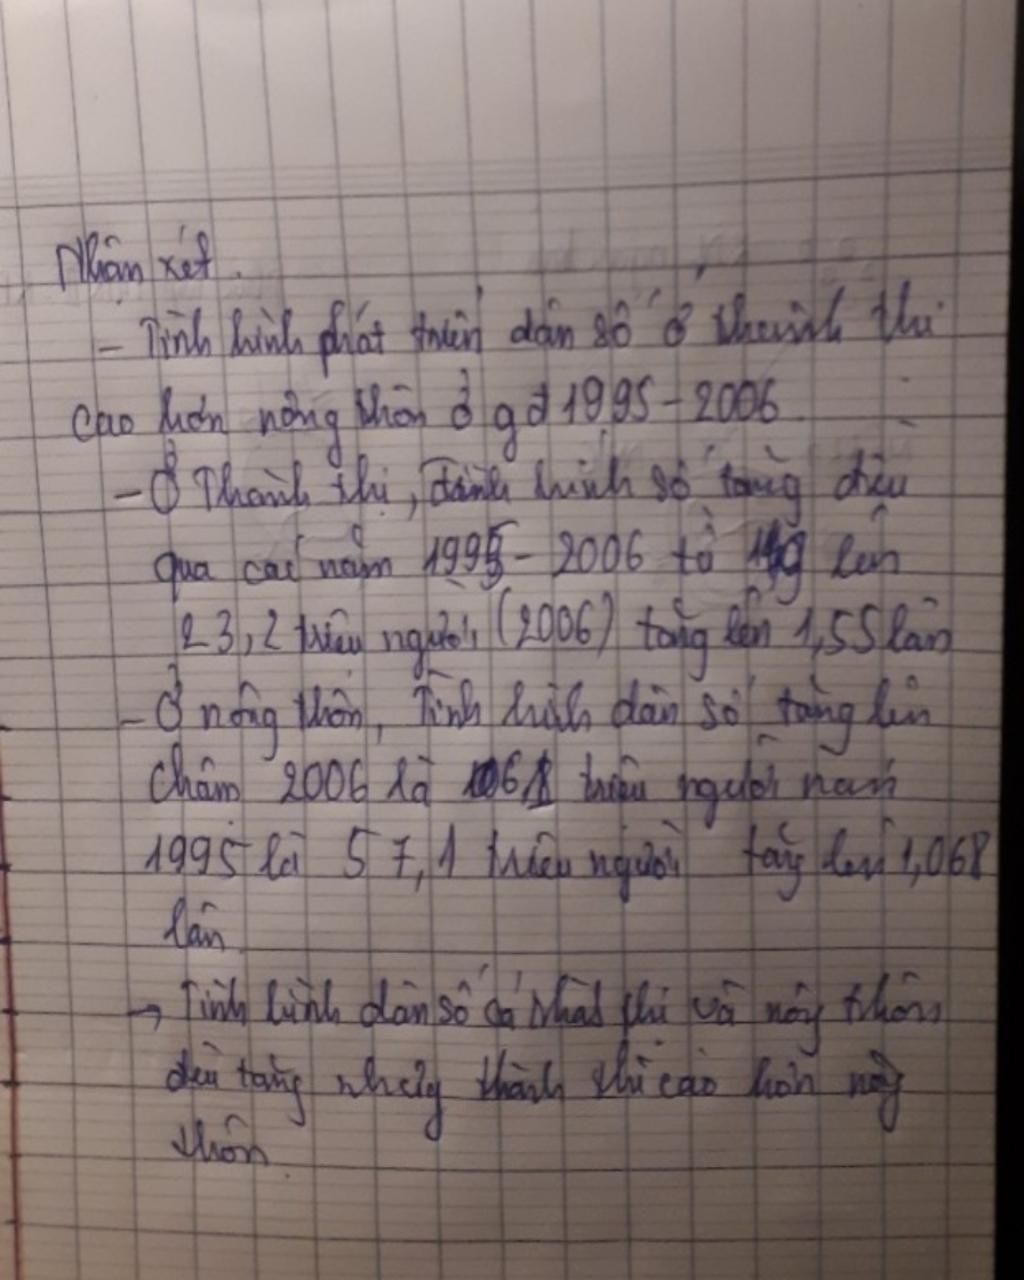 Nhận xét.
- Tình hình phát triển dân số ở thành thị
cao hơn nông thôn ở gđ 1995-2006
- Ở Thành thị, hình số tăng đều
qua các năm 1995-2006 từ lên
23,2 triệu người (2006) tăng lên 1,55 lần
- Ở nông thôn, Tình hình dân số tăng lên
chậm 2006 là triệu người năm
1995 là 57,1 triệu người tăng lên 1,068
lần
→ Tình hình dân số cả thị và nông thôn
đều tăng nhưng thành thị cao hơn nông
thôn.